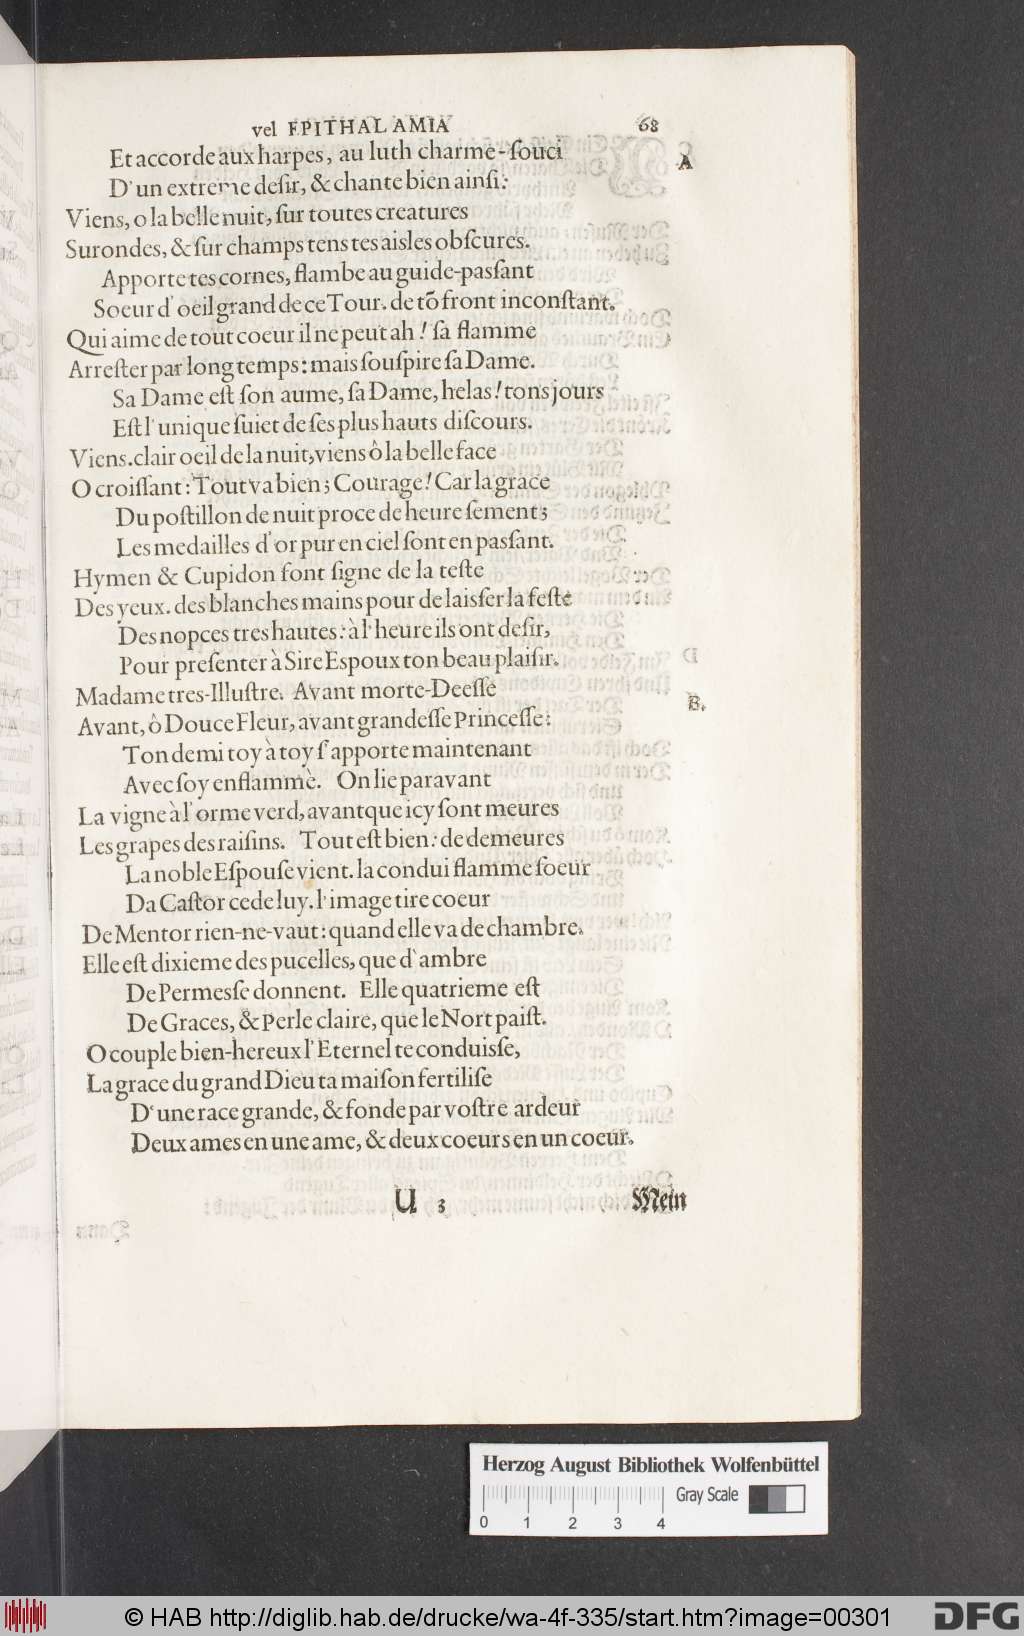 vel EPITHALAMIA 68
Et accorde aux harpes, au luth charme-ſouci A
D'un extreme deſir, & chante bien ainſi:
Viens, o la belle nuit, ſur toutes creatures
Surondes, & ſur champs tens tes aisles obſcures.
Apporte tes cornes, flambe au guide-pasſant
Soeur d'oeil grand de ce Tour. de tõ front inconſtant.
Qui aime de tout coeur il ne peut ah! ſa flamme
Arreſter par long temps: mais ſouſpire ſa Dame.
Sa Dame eſt ſon aume, ſa Dame, helas! tons jours
Eſt l'unique ſuiet de ſes plus hauts diſcours.
Viens. clair oeil de la nuit, viens ô la belle face
O croiſſant: Tout va bien; Courage! Car la grace
Du poſtillon de nuit proce de heure ſement;
Les medailles d'or pur en ciel ſont en pasſant.
Hymen & Cupidon font ſigne de la teſte
Des yeux. des blanches mains pour de laisſer la feſte
Des nopces tres hautes: à l'heure ils ont deſir,
Pour preſenter à Sire Espoux ton beau plaiſir.
Madame tres-Illuſtre. Avant morte-Deeſſe B.
Avant, ô Douce Fleur, avant grandeſſe Princeſſe:
Ton demi toy à toy ſ'apporte maintenant
Avec ſoy enflammè. On lie paravant
La vigne à l'orme verd, avantque icy ſont meures
Les grapes des raiſins. Tout eſt bien: de demeures
La noble Eſpouſe vient. la condui flamme ſoeur
Da Caſtor cede luy. l'image tire coeur
De Mentor rien-ne-vaut: quand elle va de chambre.
Elle eſt dixieme des pucelles, que d'ambre
De Permesſe donnent. Elle quatrieme eſt
De Graces, & Perle claire, que le Nort paiſt.
O couple bien-hereux l'Eternel te conduisſe,
La grace du grand Dieu ta maiſon fertiliſe
D'une race grande, & fonde par voſtre ardeur
Deux ames en une ame, & deux coeurs en un coeur.
U 3 Mein
Herzog August Bibliothek Wolfenbüttel
Gray Scale
0 1 2 3 4
© HAB http://diglib.hab.de/drucke/wa-4f-335/start.htm?image=00301
DFG